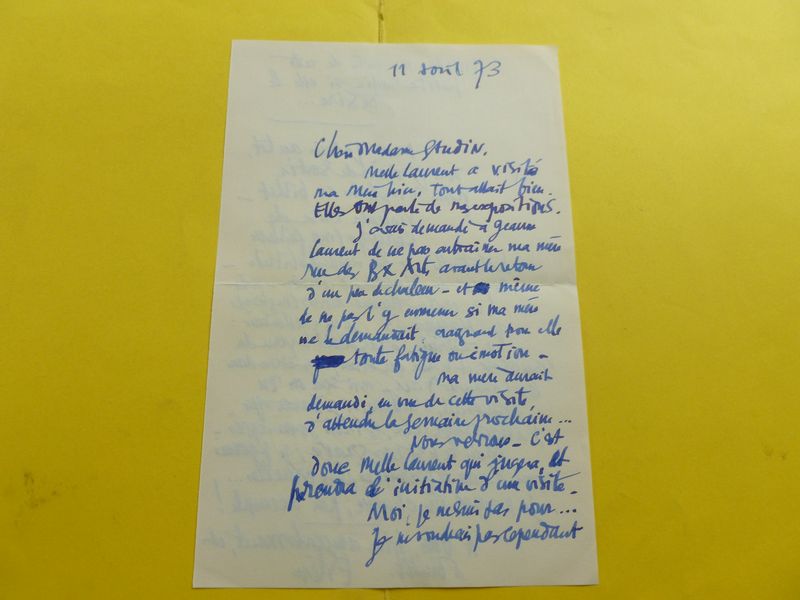 11 avril 73
Chère Madame Gaudin,
Melle Laurent a visité
ma mère hier, tout allait bien.
Elles ont parlé de nos expositions.
J'avais demandé à Jeanne
Laurent de ne pas entrainer ma mère
rue des Bx Arts avant le retour
d'un peu de chaleur - et même
de ne pas l'y emmener si ma mère
ne le demandait, craignant pour elle
toute fatigue ou émotion -
ma mère aurait
demandé, en vue de cette visite
d'attendre la semaine prochaine...
nous verrons - C'est
donc Melle Laurent qui jugera, et
prendra l'initiative d'une visite -
Moi, je ne suis pas pour...
Je ne voudrais pas cependant